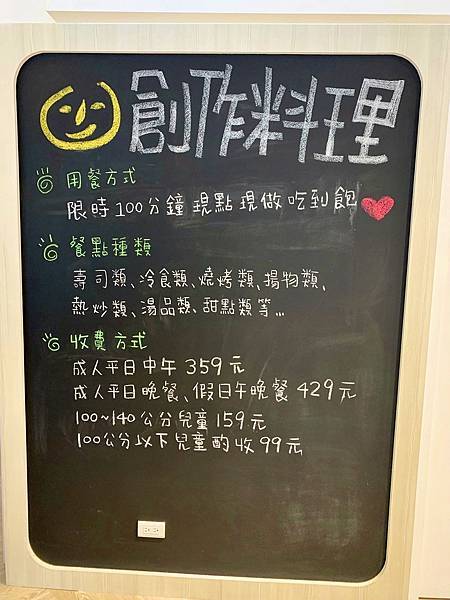 創作料理
用餐方式
限時100分鐘 現點現做 吃到飽
餐點種類
壽司類、冷食類、燒烤類、揚物類、
熱炒類、湯品類、甜點類等...
收費方式
成人平日中午 359元
成人平日晚餐、假日午晚餐 429元
100~140公分兒童 159元
100公分以下兒童酌收 99元